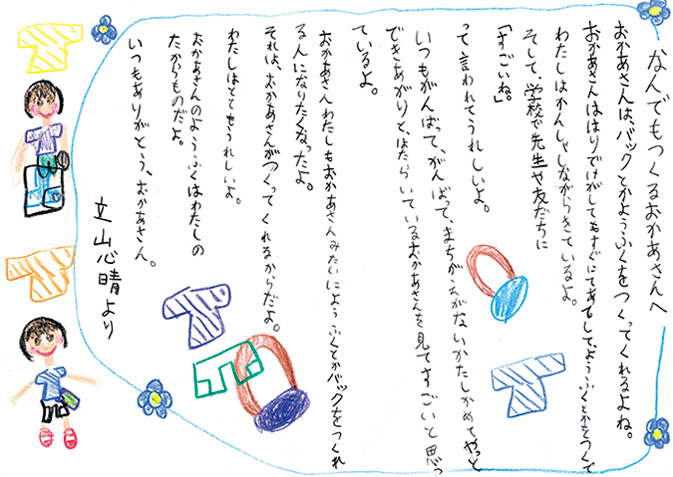 なんでもつくるおかあさんへ
おかあさんは、バックとかようふくをつくってくれるよね。
おかあさんははりでけがしてもすぐにてあてして、ようふくとかをつくて
わたしはかんしゃしながらきているよ。
そして、学校で先生や友だちに
「すごいね」
って言われてうれしいよ。
いつもがんばって、がんばって、まちがえがないかたしかめてやっと
できあがりと、はたらいているおかあさんを見てすごいと思っ
ているよ。
おかあさんわたしもおかあさんみたいにようふくとかバックをつくれ
る人になりたくなったよ。
それは、おかあさんがつくってくれるからだよ。
わたしはとてもうれしいよ。
おかあさんのようふくはわたしの
たからものだよ。
いつもありがとう、おかあさん。
立山心晴より